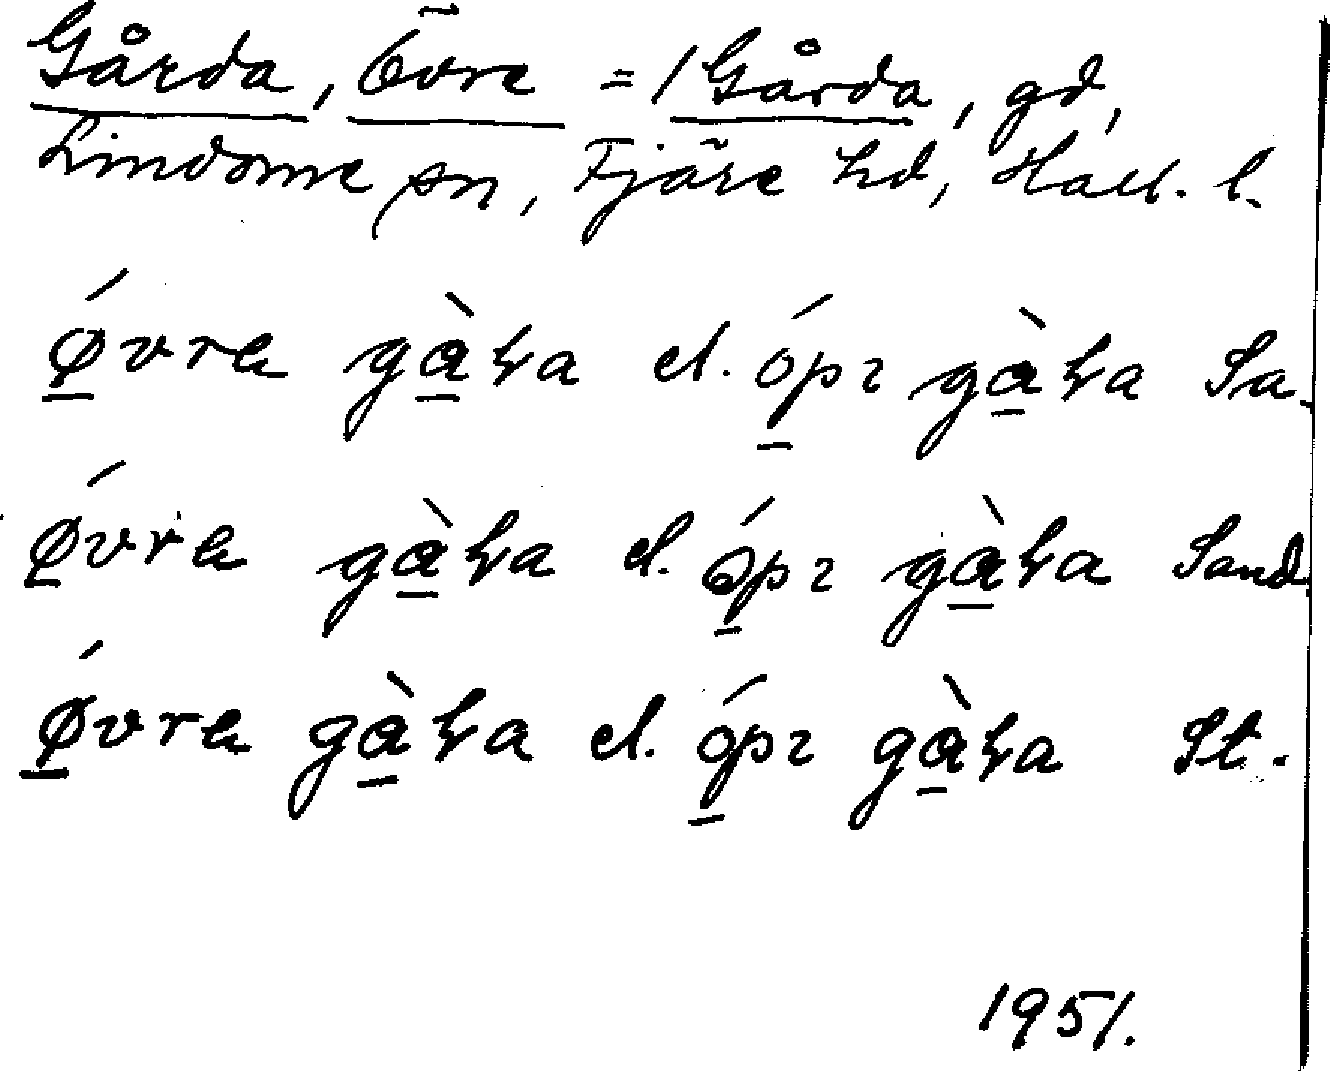 Gårda, Övre = 1 Gårda, gd,
Lindome sn, Fjäre hd, Hall. l.
ǿvra gàꞕa el. ópr gàꞕa Sa.
ǿvra gàꞕa el. ópr gàꞕa Sand
ǿvra gàꞕa el. ópr gàꞕa St.
1951.